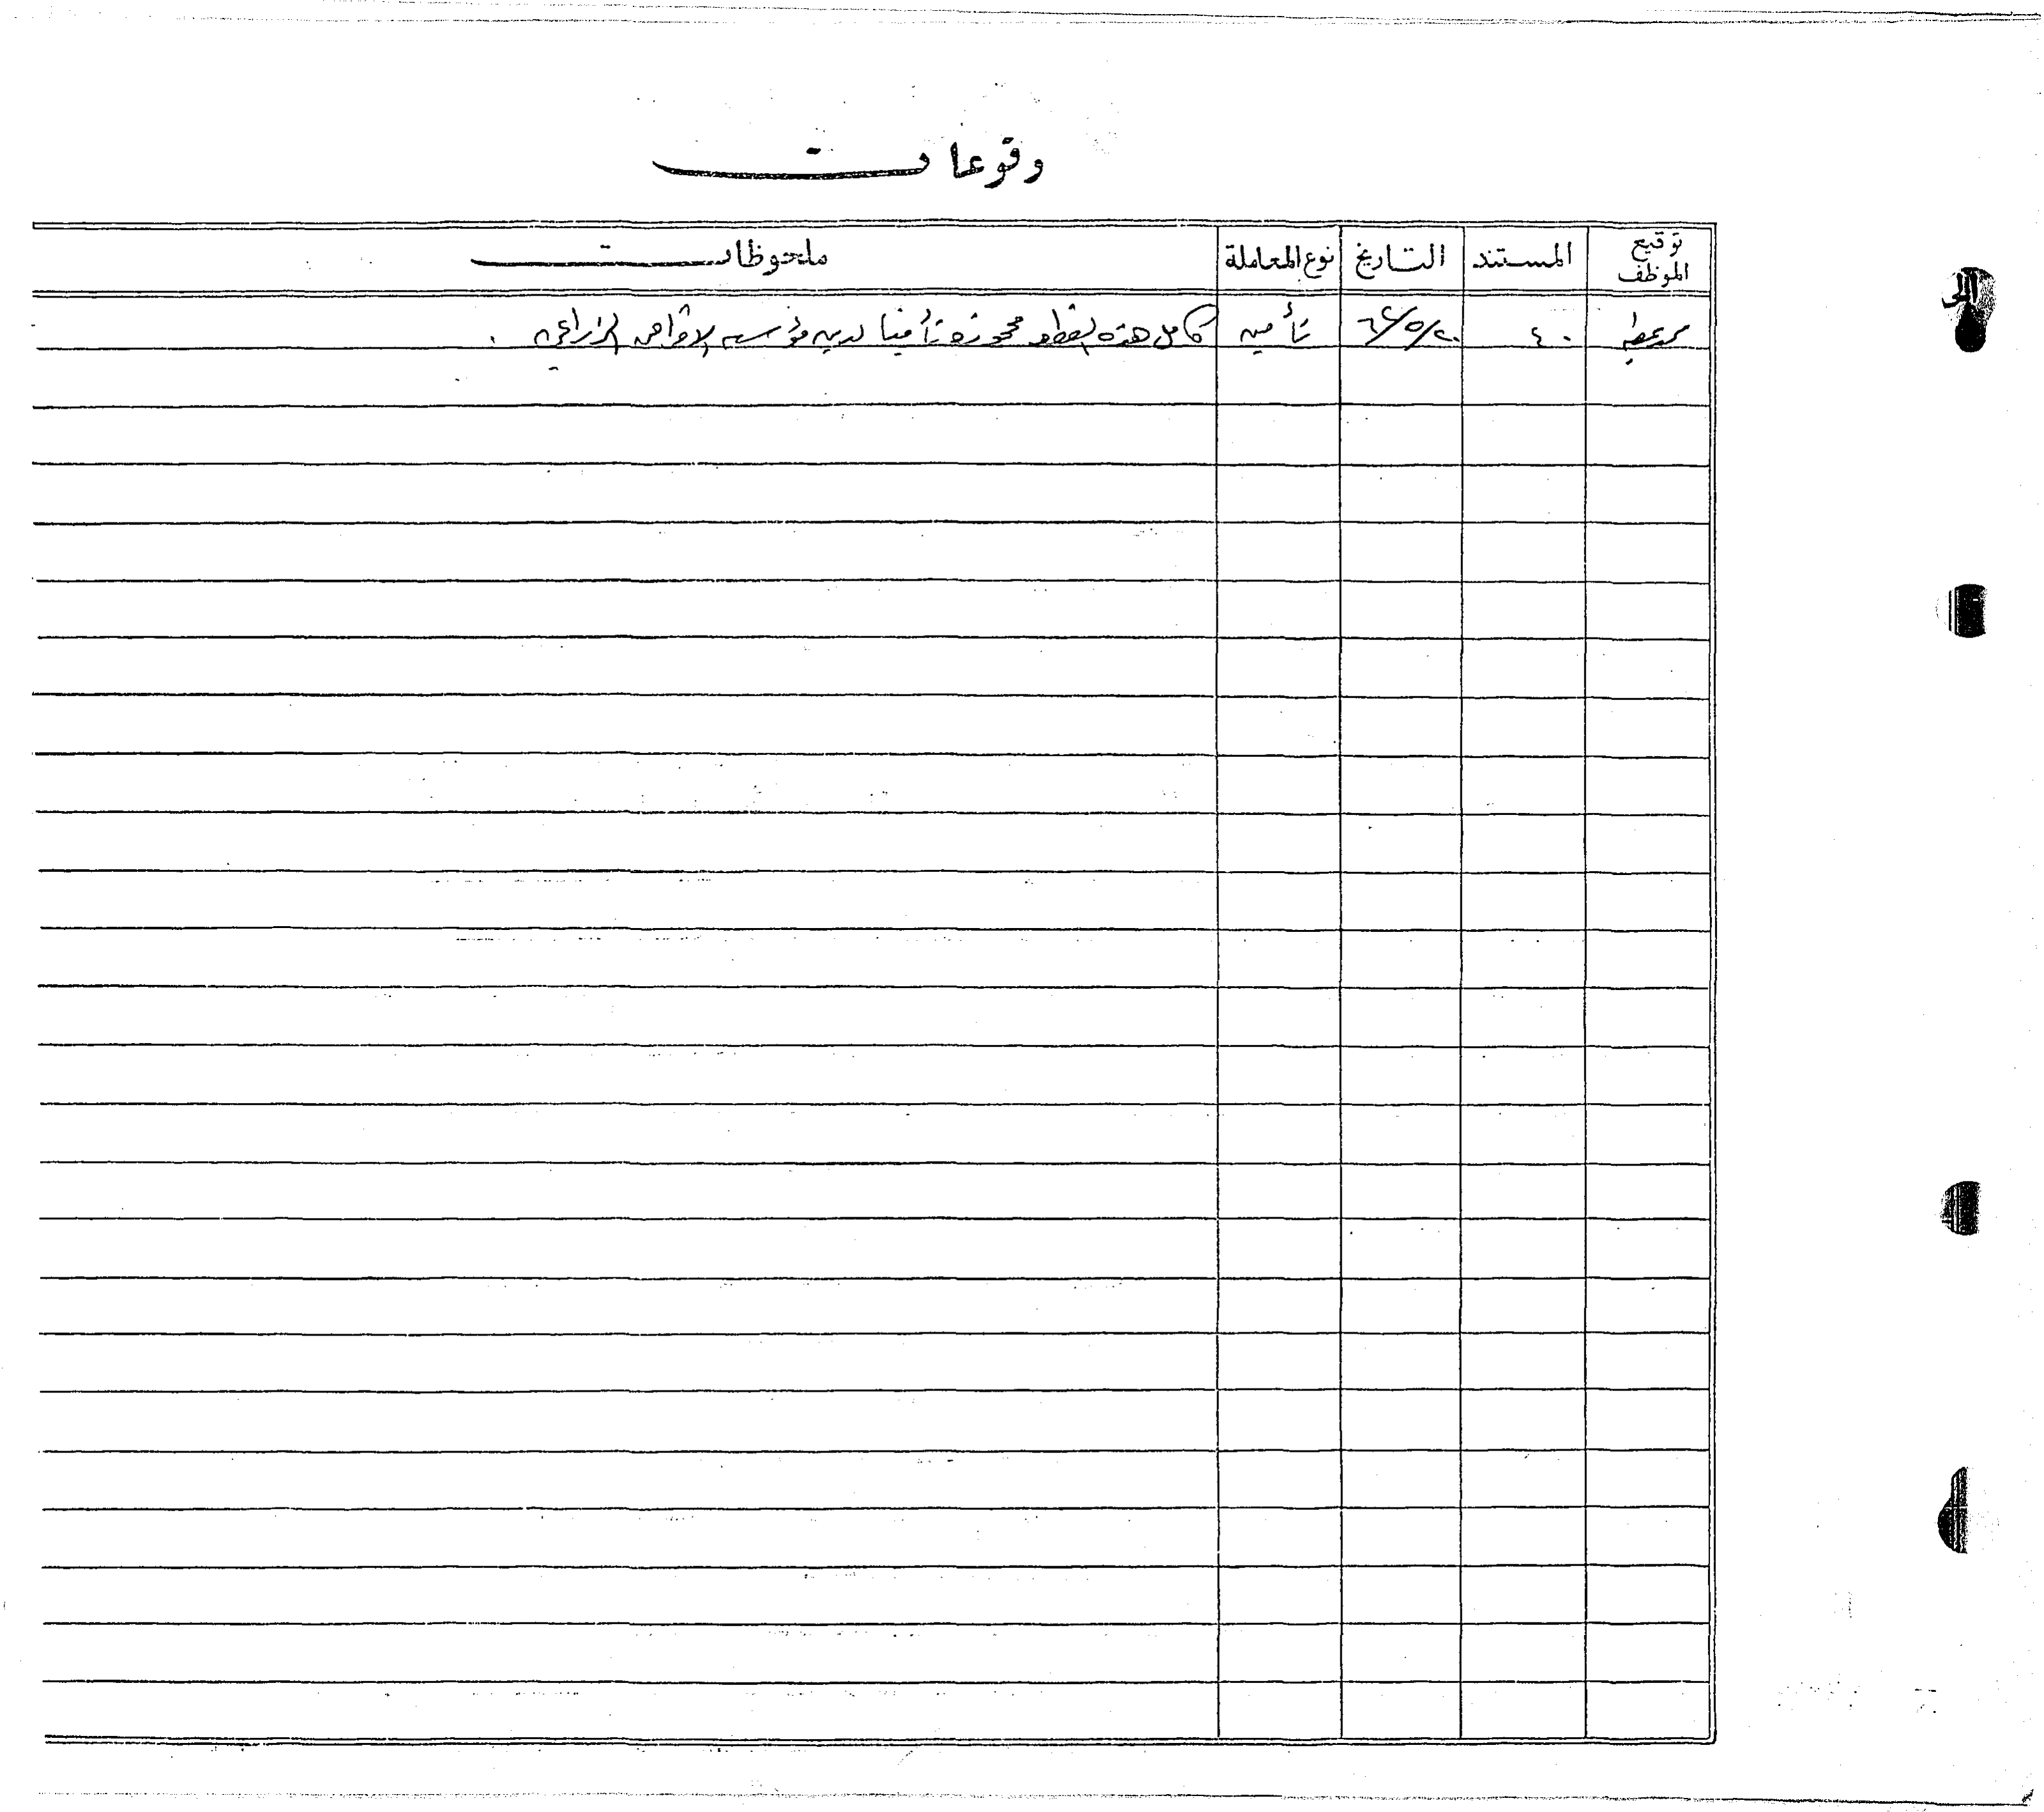 وقوعات
توقيع الموظف المستند التاريخ نوع المعاملة ملحوظات
٤٠ ٦٤/٥/٢٠ تأمين كامل هذه القطعة محجوزة تأمينا لدين مؤسسة الاقراض الزراعي .